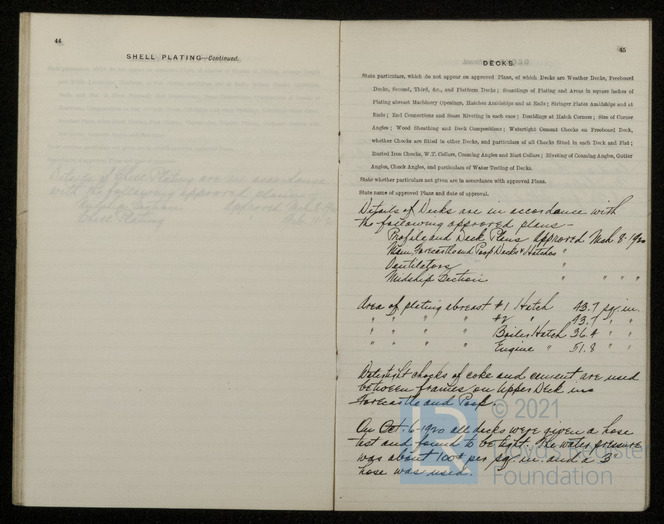 44
SHELL PLATING—Continued.
45
DECKS
State particulars, which do not appear on approved Plans, of which Decks are Weather Decks, Freeboard
Decks, Second, Third, &c., and Platform Decks; Scantlings of Plating and Areas in square inches of
Plating abreast Machinery Openings, Hatches Amidships and at Ends; Stringer Plates Amidships and at
Ends; End Connections and Seam Riveting in each case; Doublings at Hatch Corners; Size of Corner
Angles; Wood Sheathing and Deck Compositions; Watertight Cement Chocks on Freeboard Deck,
whether Chocks are fitted in other Decks, and particulars of all Chocks fitted in each Deck and Flat;
Rusted Iron Chocks, W.T. Collars, Coaming Angles and Mast Collars; Riveting of Coaming Angles, Gutter
Angles, Chock Angles, and particulars of Water Testing of Decks.
State whether particulars not given are in accordance with approved Plans.
State name of approved Plans and date of approval.
Details of Decks are in accordance with
the following approved plans—
Profile and Deck Plans Approved Mch. 8. 1920
Main, Forecastle and Poop Decks & Hatches "
Ventilators "
Midship Section " " " "
Area of plating abreast #1 Hatch 43.7 sq. in.
" " " " #2 " 43.7 " "
" " " " Boiler Hatch 36.4 " "
" " " " Engine " 51.8 " "
Watertight chocks of coke and cement are used
between frames on Upper Deck in
Forecastle and Poop.
On Oct. 6-1920 all decks were given a hose
test and found to be tight. The water pressure
was about 100# per sq. in. and a 3"
hose was used.
© 2021
Lloyd's Register
Foundation